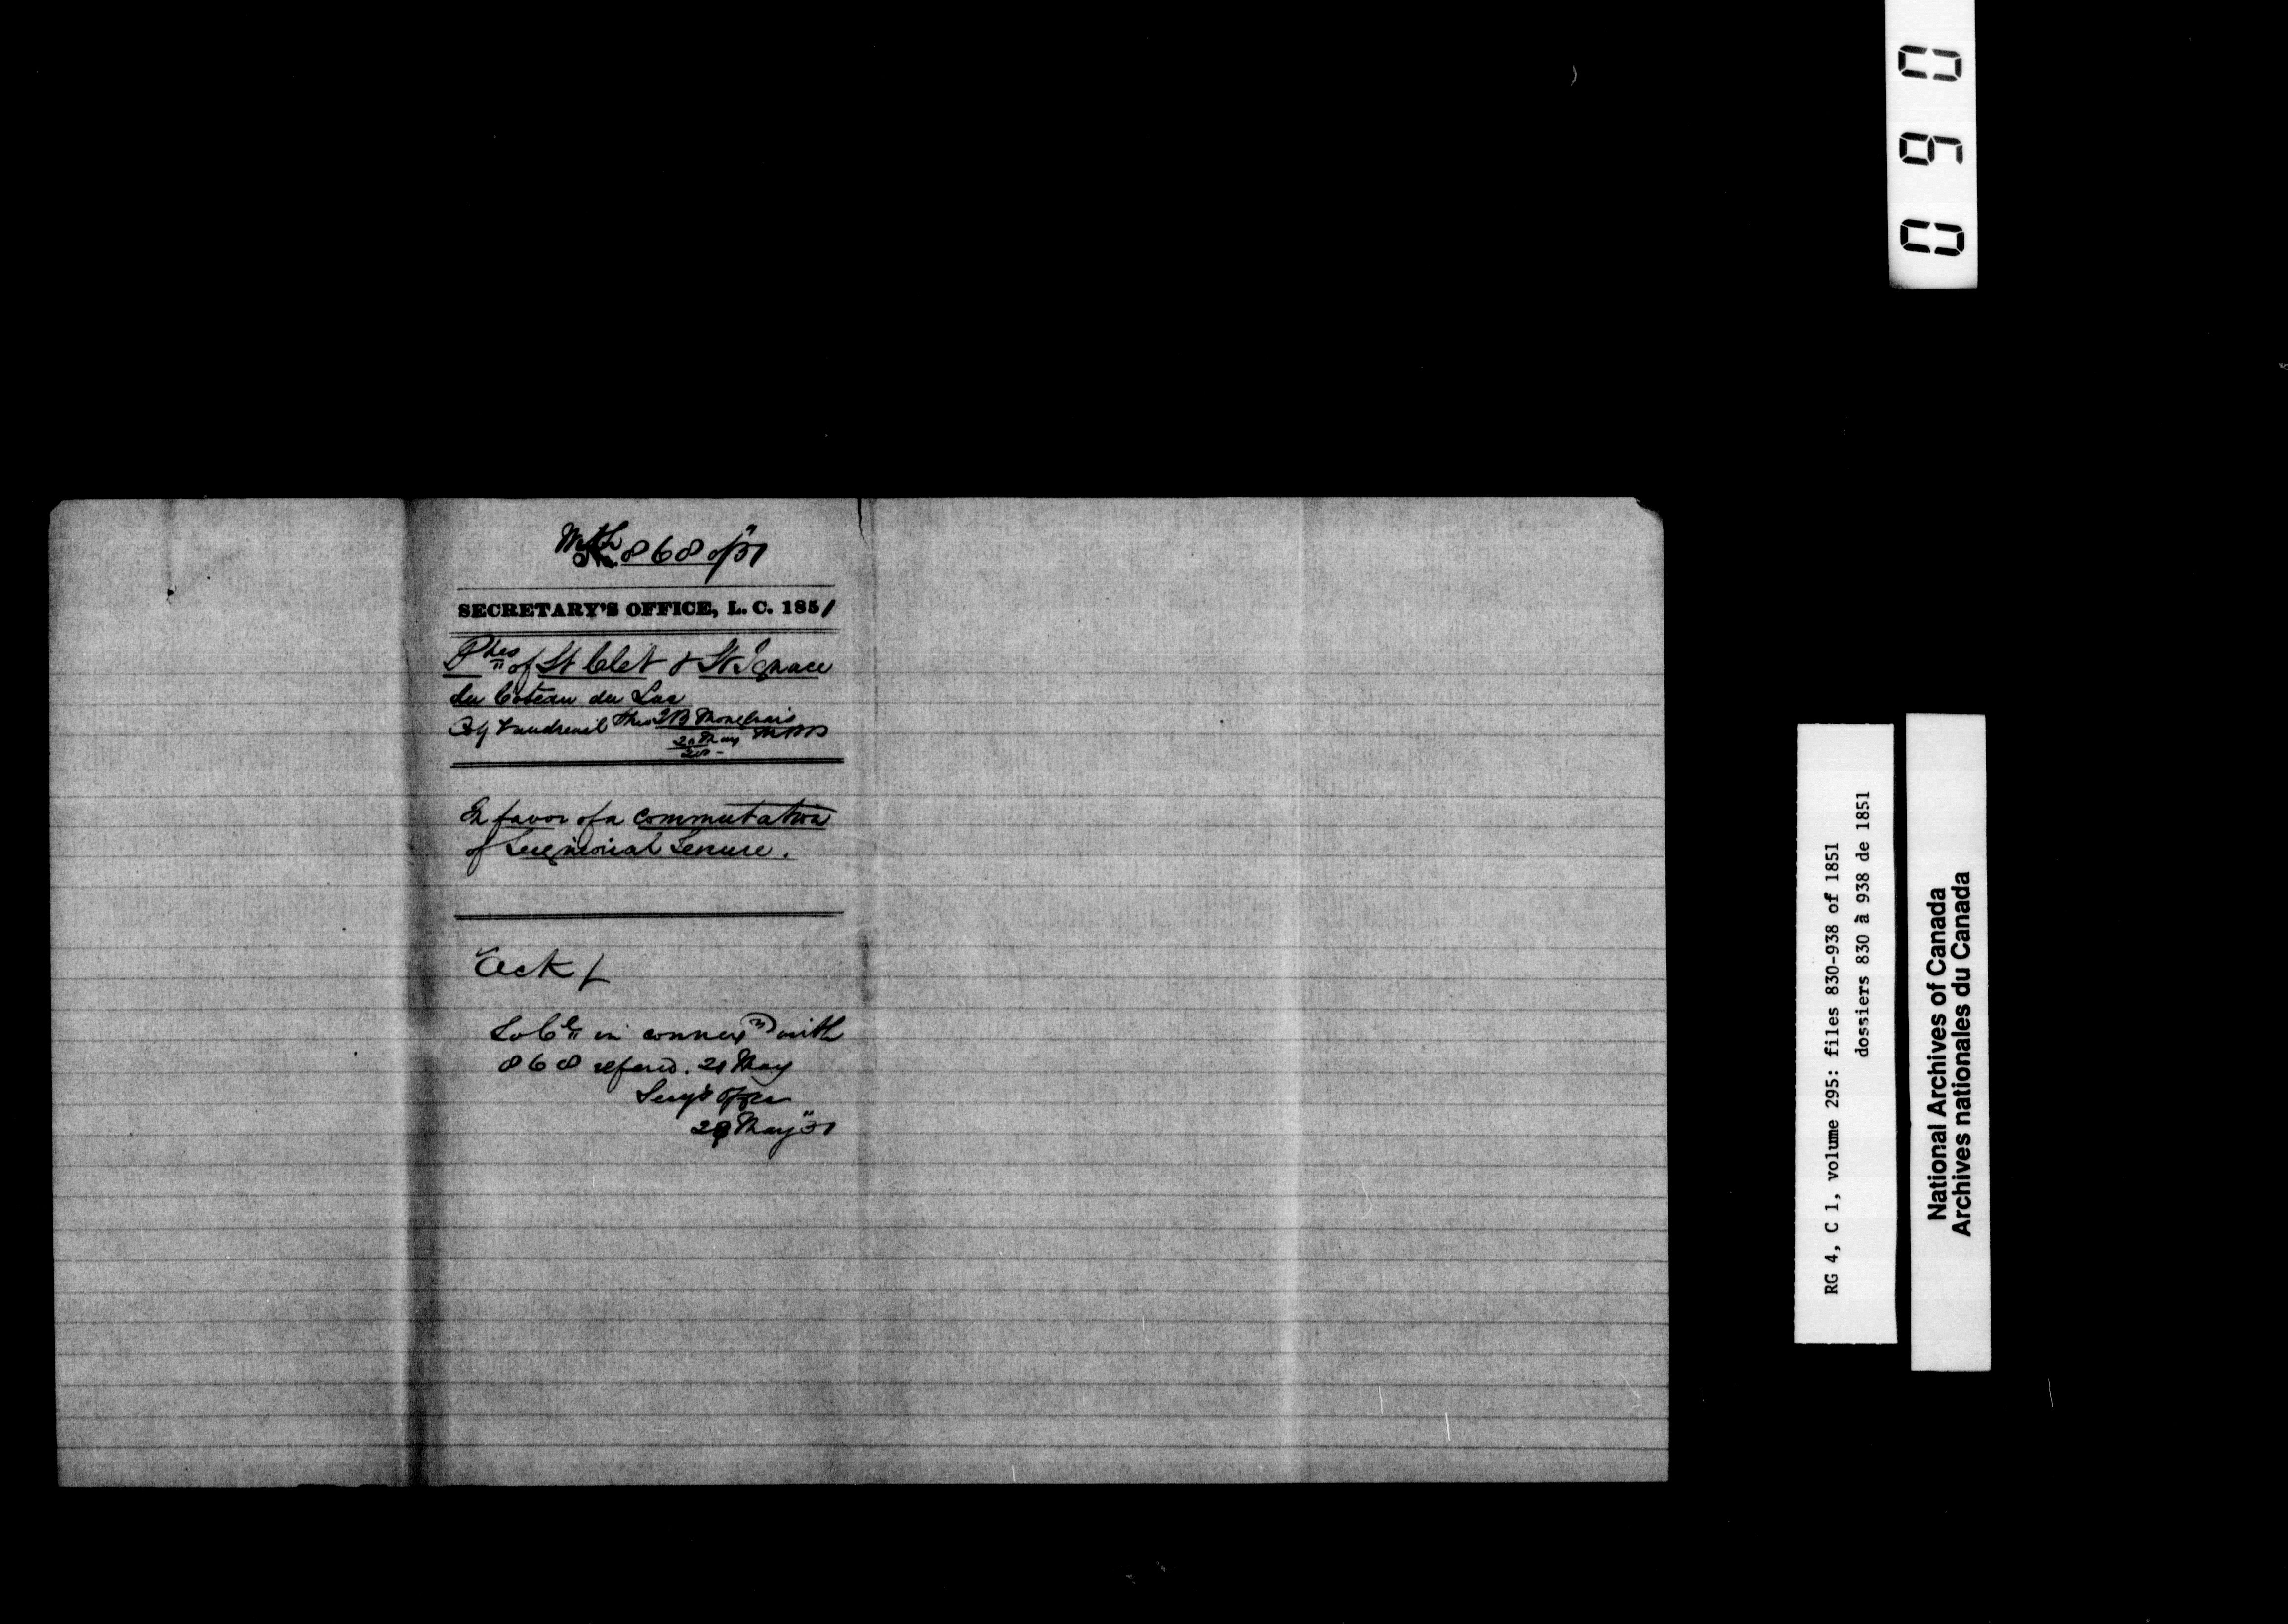 With 868 of "51
SECRETARY'S OFFICE, L. C. 1851
Phes of St Clet & St Ignace
du Coteau du Lac
Cty Vaudreuil thro J B Mongenais
20 May MPP
In favor of a commutation
of Seignioral Tenure.
Ack
in connexn with
868 referd. 20 May
Secy's Office
May "51
090
RG 4, C 1, volume 295: files 830-938 of 1851
dossiers 830 à 938 de 1851
National Archives of Canada
Archives nationales du Canada